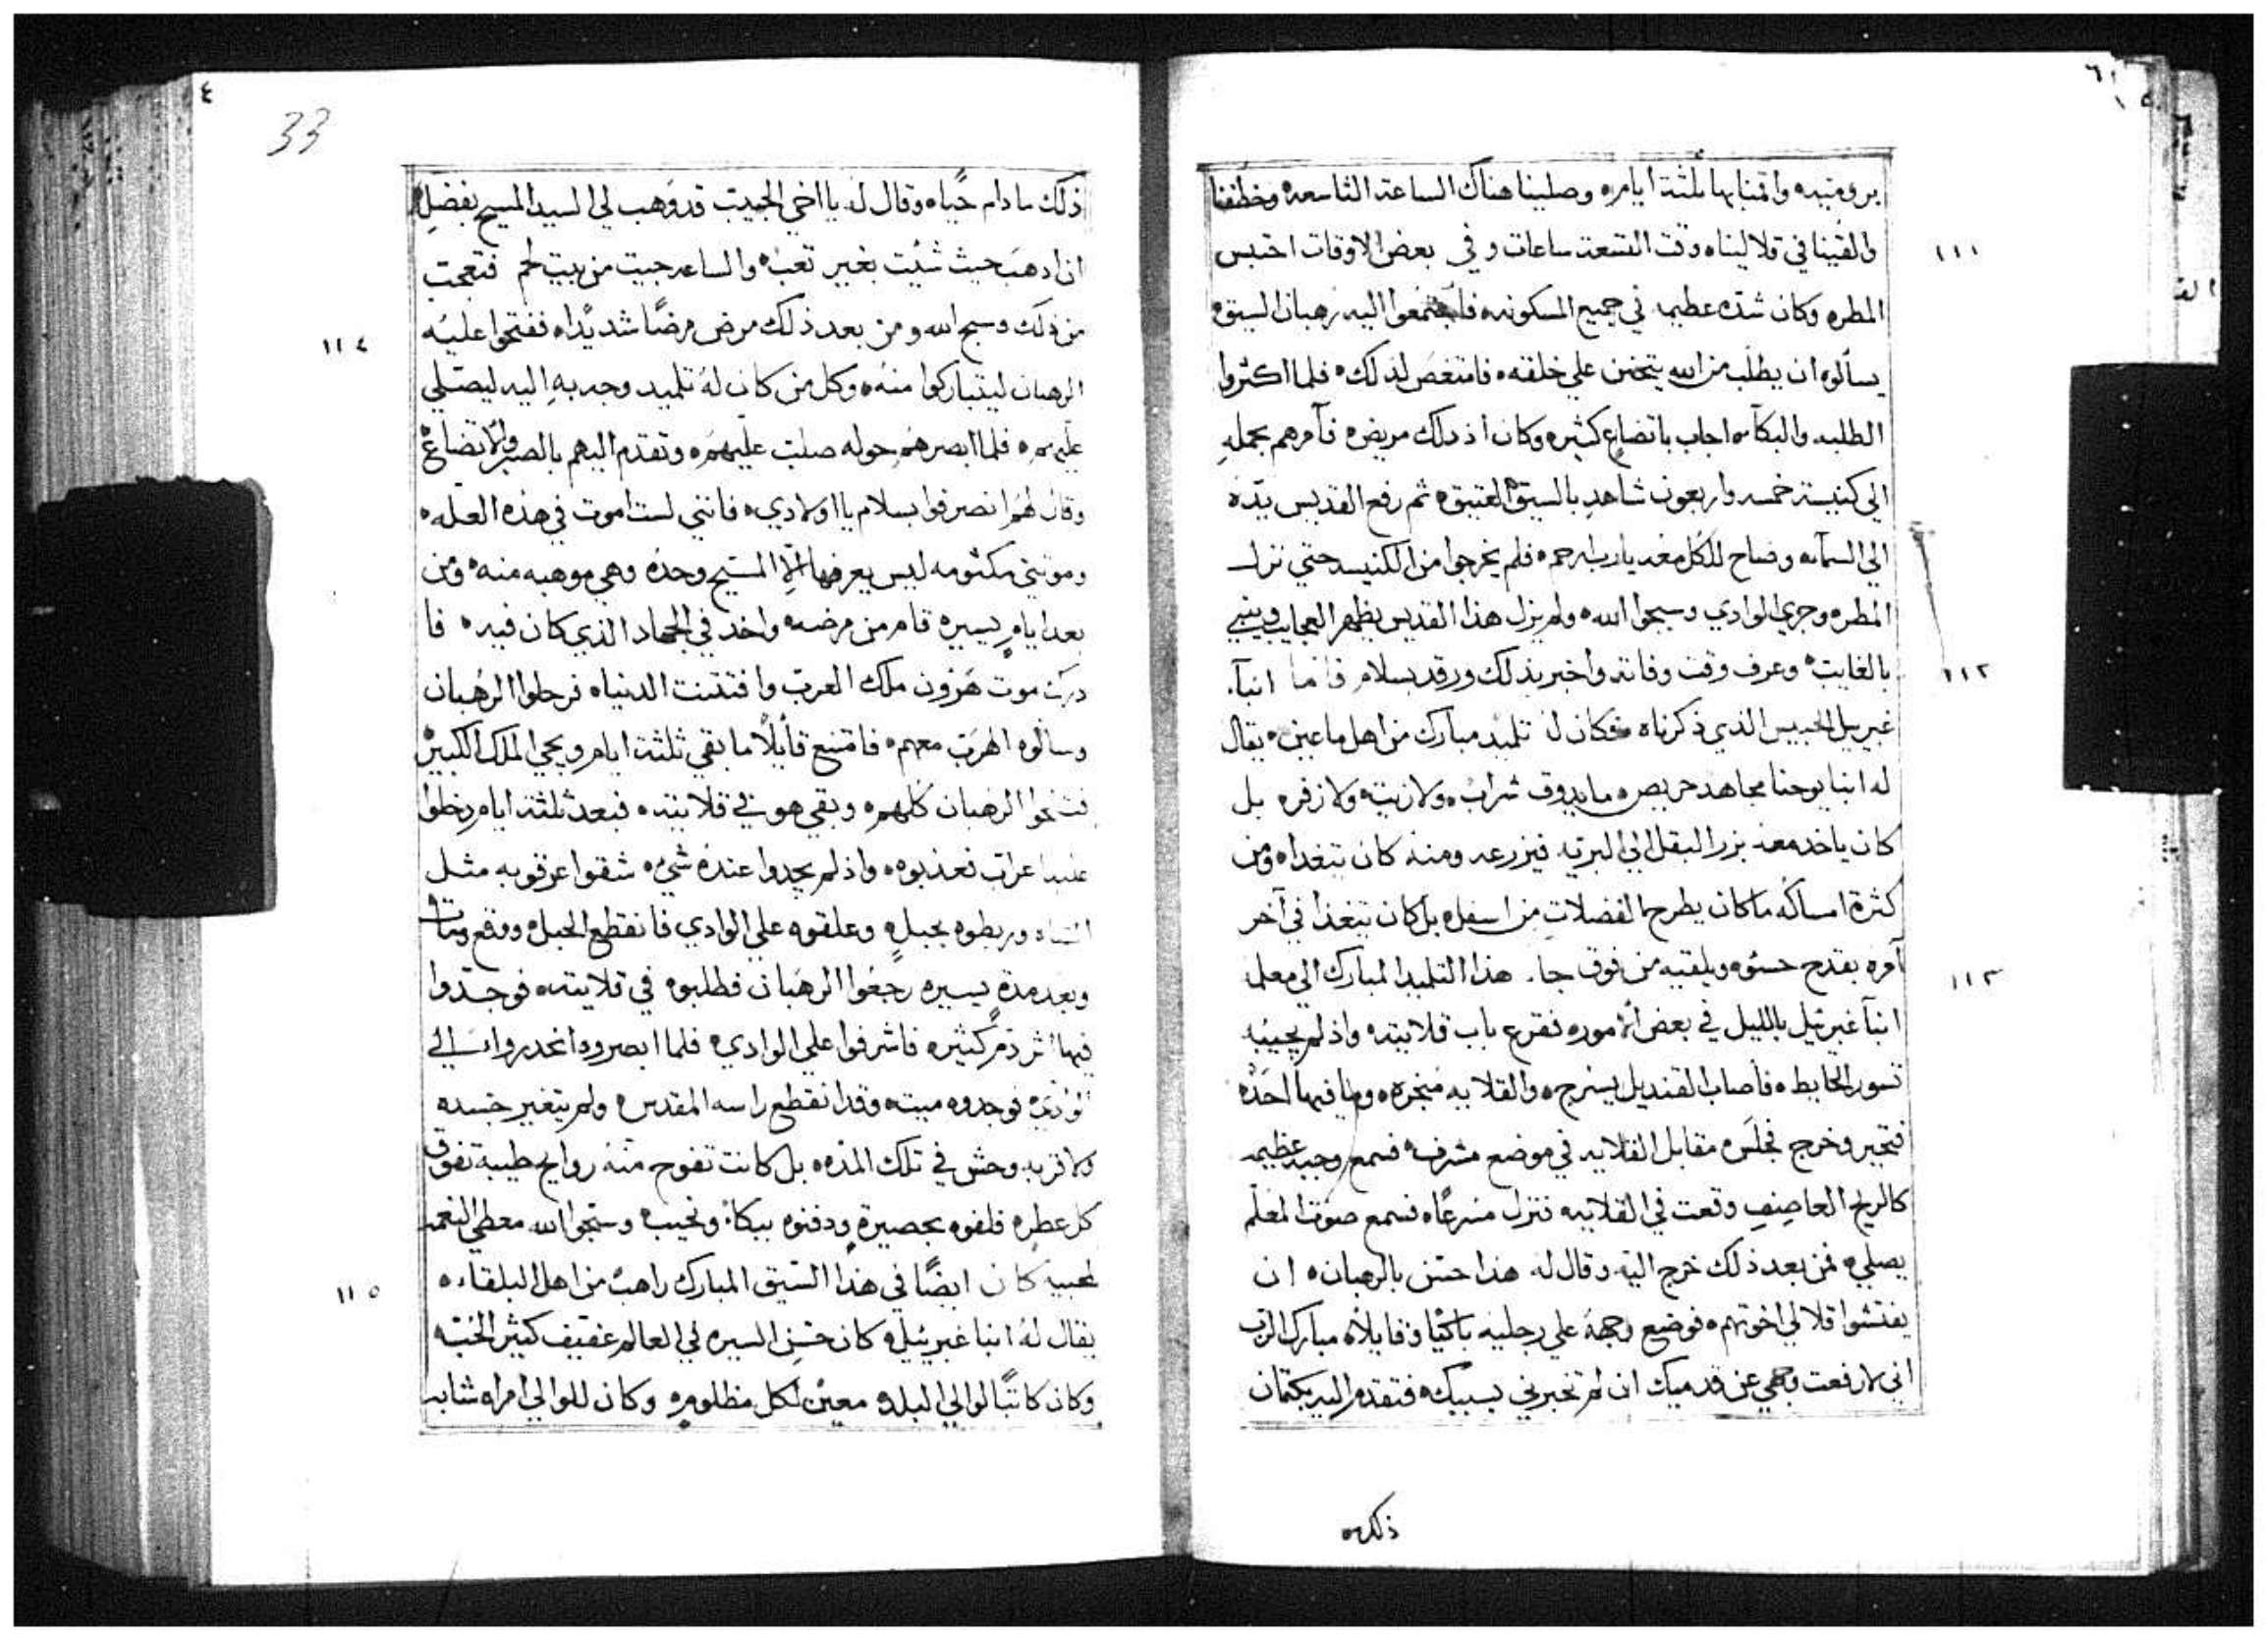 بروميه واقمنا بها ثلثة ايام ه وصلينا هناك الساعة التاسعه وخطفنا
والقينا في قلالينا ه وقت التسعة ساعات وفي بعض الاوقات احتبس
١١١
المطر ه وكان شده عظيمه في جميع المسكونه ه فاجتمعوا اليه رهبان السيق ه
يسألوه ان يطلب من الله يتحنن علي خلقه ه فامتغص لذلك ه فلما اكثروا
الطلبه والبكآ ه اجاب باتضاع كثير ه وكان اذ ذلك مريض ه فآمرهم بحمله
الي كنيسة خمسه واربعون شاهد بالسيق العتيق ه ثم رفع القديس يده
الي السمآ ه وصاح للكل معه يا رب ارحم ه فلم يخرجوا من الكنيسه حتي نزل
المطر ه وجري الوادي وسبحوا الله ه ولم يزل هذا القديس يظهر العجايب وينبي
بالغايب ه وعرف وقت وفاته واخبر بذلك ورقد بسلام فاما انبآ
١١٢
غبريل الحبيس الذي ذكرناه فكان له تلميد مبارك من اهل ماعين ه يقال
له انبا يوحنا مجاهد حريص ه ما يدوق شراب ه ولا زيت ه ولا زفره بل
كان ياخد معه بزر البقل الي البريه فيزرعه ومنه كان يتغدا ه ومن
كثرة امساكه ما كان يطرح الفضلات من اسفله بل كان يتغذا في آخر
آمره بقدح حسوه ويلقيه من فوق جا هذا التلميد المبارك الي معلمه
١١٣
انبآ غبريل بالليل في بعض الامور ه فقرع باب قلايته ه واذ لم يجيبه
تسور الحايط ه فأصاب القنديل يسرج ه والقلايه مبخره ه وما فيها احد ه
فتحير وخرج فجلس مقابل القلايه في موضع مشرف ه فسمع وجبه عظيمه
كالريح العاصف وقعت في القلايه فنزل مسرعًا ه فسمع صوت المعلم
يصلي ه فمن بعد ذلك خرج اليه وقال له هذا حسن بالرهبان ه ان
يفتشوا قلالي اخوتهم ه فوضع وجهه علي رجليه باكيًا وقايلًا ه مبارك الرب
اني لا رفعت وجهي عن قدميك ان لم تخبرني بسبيك ه فتقدم اليه بكتمان
ذلك ه
33
ذلك ما دام حيًا ه وقال له يا اخي الحبيب قد وهب لي السيد المسيح بفضله
ان ادهب حيث شئت بغير تعب ه والساعه جيت من بيت لحم فتعجب
من ذلك وسبح الله ومن بعد ذلك مرض مرضًا شديدًا ه ففتحوا عليه
١١٤
الرهبان ليتباركوا منه ه وكل من كان له تلميد وجه به اليه ليصلي
عليهم ه فلما ابصرهم حوله صلب عليهم ه وتقدم اليهم بالصبر والاتضاع
وقال لهم انصرفوا بسلام يا اولادي ه فانني لست اموت في هذه العله ه
وموتتي مكتومه ليس يعرفها الا المسيح وحده وهي موهبه منه ه ومن
بعد ايام يسيره قام من مرضه ه واخد في الجهاد الذي كان فيه ه فا
درك موت هرون ملك العرب وافتتنت الدنيا ه فرحلوا الرهبان
وسالوه الهرب معهم ه فامتنع قايلًا ما بقي ثلثة ايام ويجي الملك الكبير
فتنحوا الرهبان كلهم ه وبقي هو في قلايته ه فبعد ثلثة ايام دخلوا
عليه اعراب فعذبوه ه واذ لم يجدوا عنده شي ه شقوا عرقوبه مثل
الشاه وربطوه بحبل ه وعلقوه علي الوادي فانقطع الحبل ه ووقع ومات ه
وبعد مدة يسيره رجعوا الرهبان فطلبوه في قلايته ه فوجدوا
فيها اثر دم كثير ه فاشرفوا علي الوادي ه فلما ابصروه انحدروا الي
الوادي ه فوجدوه ميت ه وقد انقطع راسه المقدس ه ولم يتغير جسده
ولا قربه وحش في تلك المده ه بل كانت تفوح منه روايح طيبه تفوق
كل عطر ه فلفوه بحصيرة ودفنوه ببكا ه ونحيب ه وسبحوا الله معطي النعمه
لمحبيه كان ايضًا في هذا السيق المبارك راهب من اهل البلقاء ه
١١٥
يقال له انبا غبرييل ه كان حسن السيره في العالم عفيف كثير المحبه
وكان كاتبًا لوالي البلد ه معين لكل مظلوم ه وكان للوالي امراه شابه